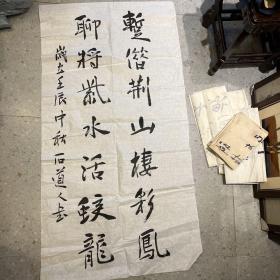 蹔借荆山棲彩鳳
聊將紫水活蛟龍
歲在壬辰中秋石道人書